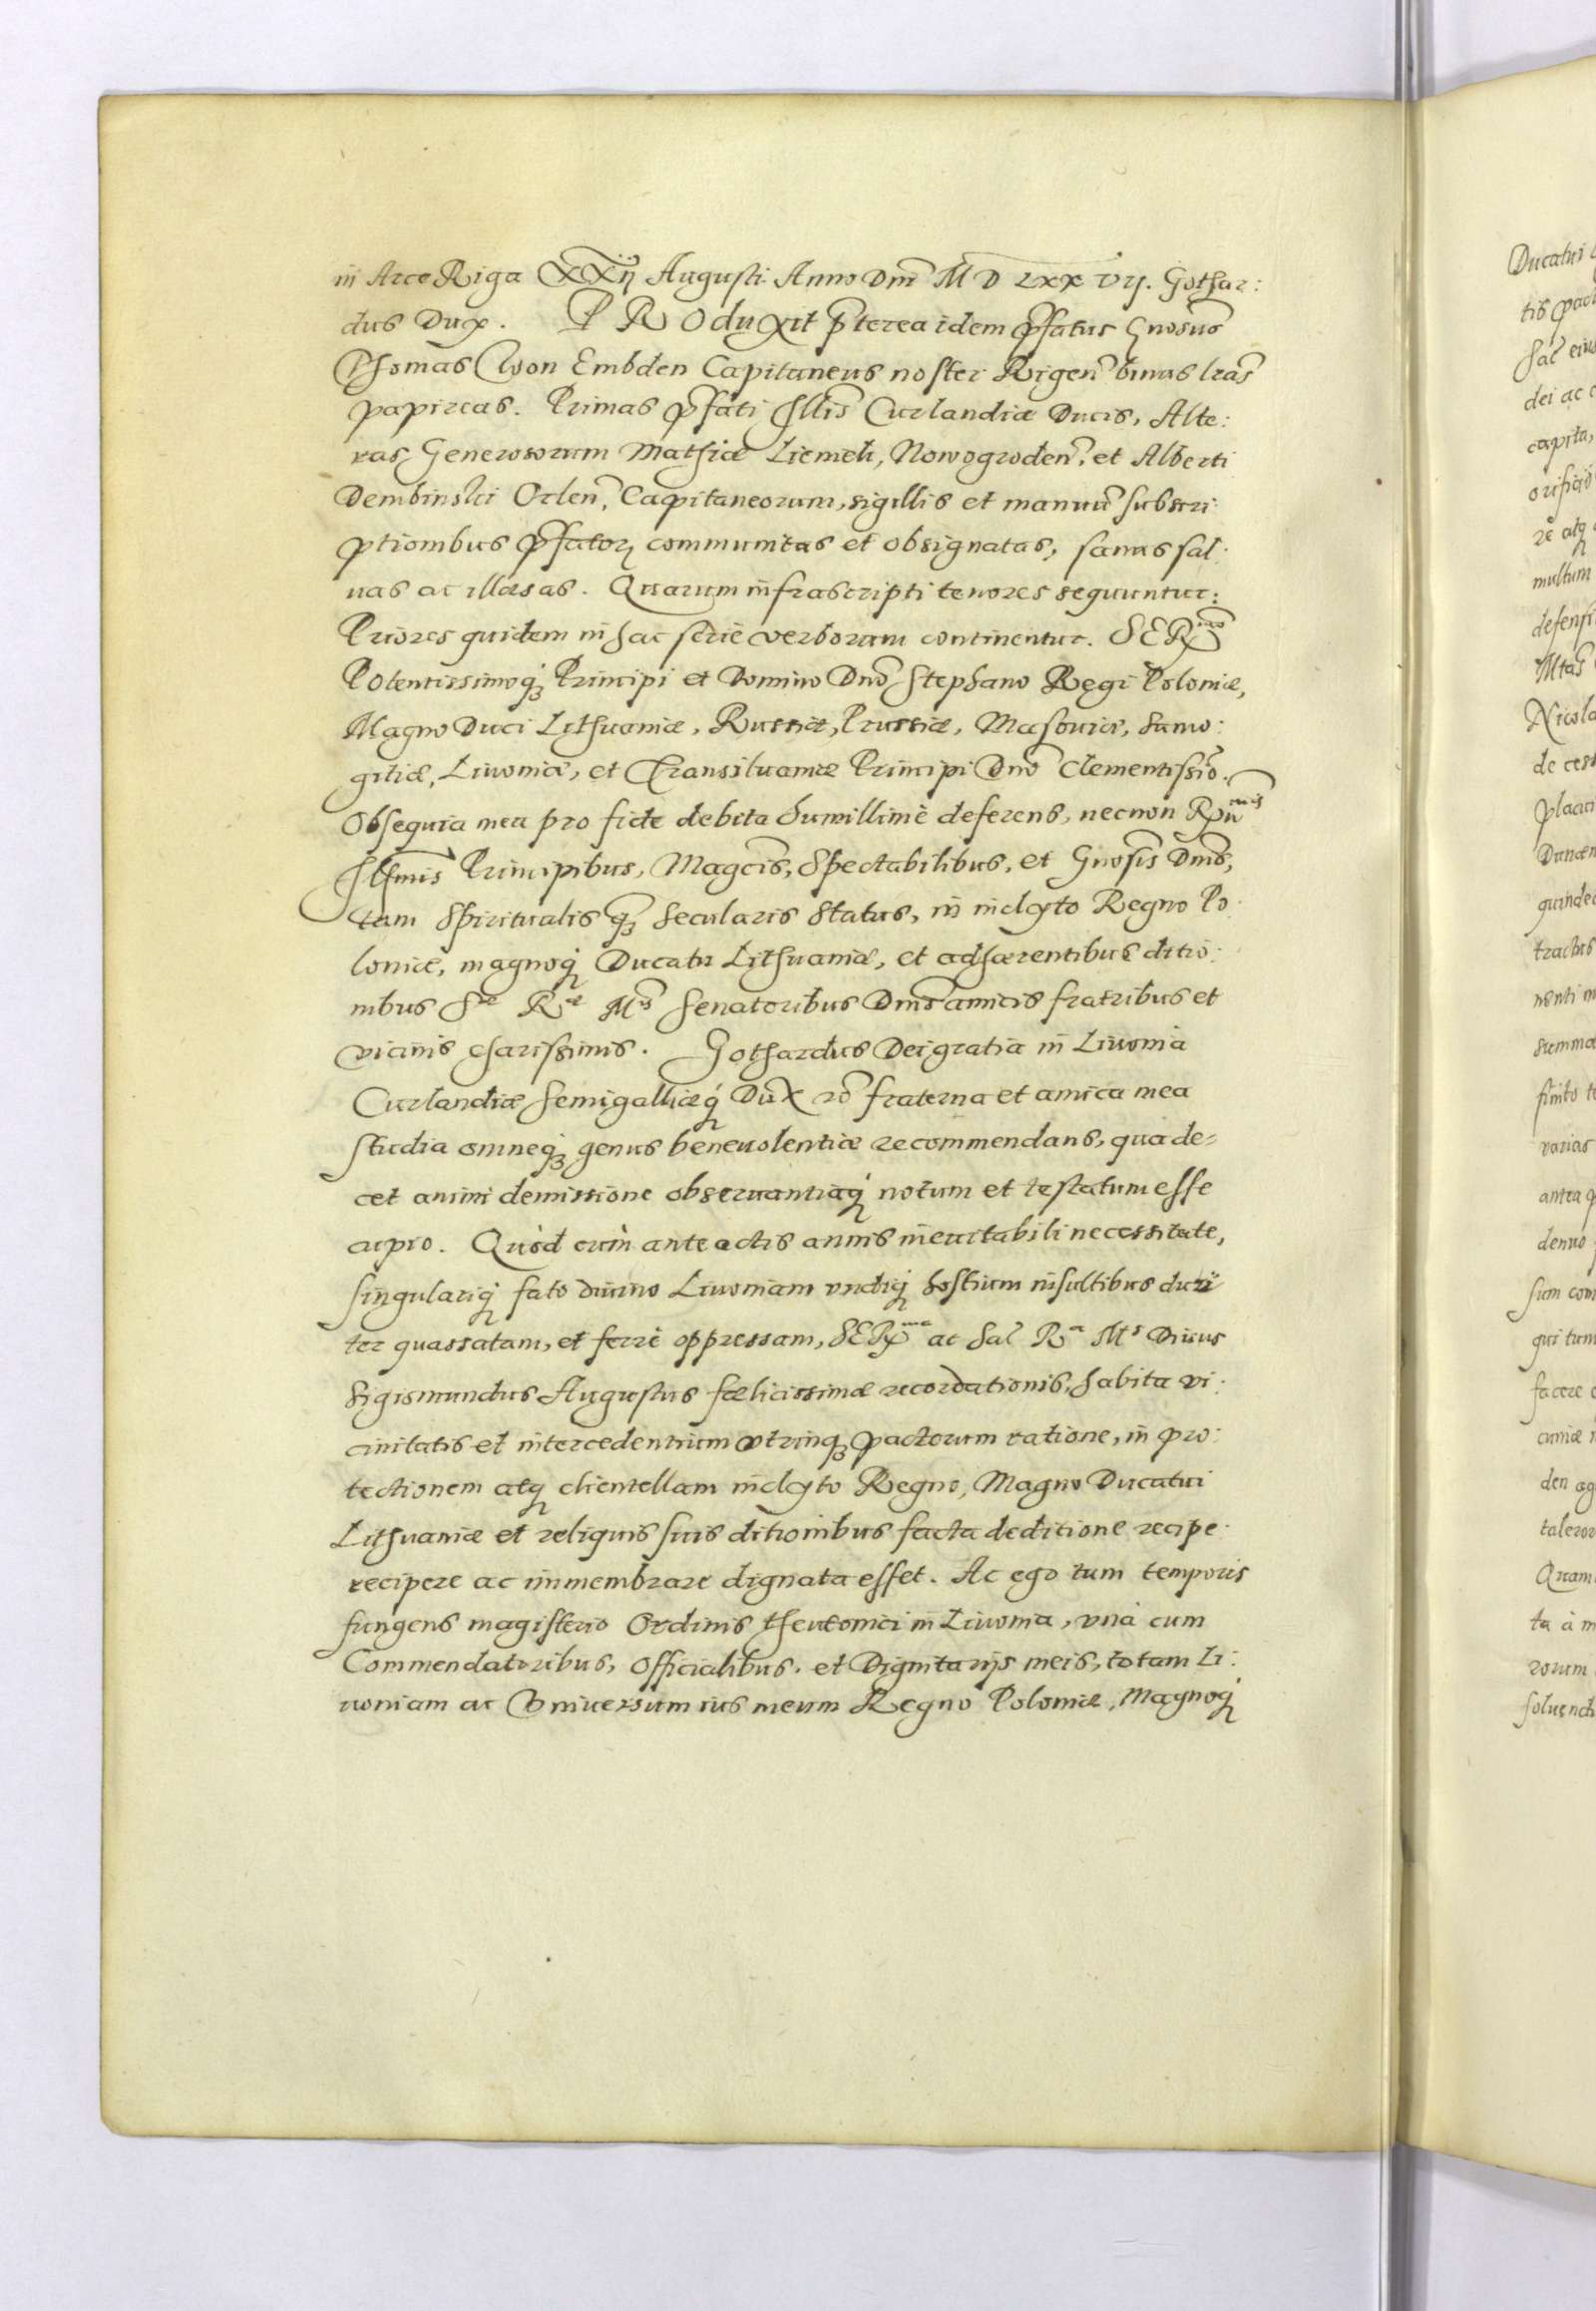 in Arce Riga XXij Augusti Anno Dni M D Lxx Vij. Gothar:
dus Dux. PROduxit pterea idem pfatus Gnosus
Thomas Won Embden Capitaneus noster Rigen binas lras
papireas. Primas pfati Illis Curlandiæ Ducis, Alte:
ras Generosorum Mathiæ Liemeli, Nowogroden, et Alberti
Dembinski Orlen, Capitaneorum, sigillis et manuu subscri
ptionibus pfator communitas et obsignatas, sanas sal:
uas ac illæsas. Quarum infrascripti tenores sequuntur:
Priores quidem in hac serie verborum continentur. SERmo
Potentissimoq Principi et Domino Dno Stephano Regi Poloniæ,
Magno Duci Lithuaniæ, Russiæ, Prussiæ, Masouiæ, Samo:
gitiæ, Liuoniæ, et Transiluaniæ Principi Dno Clementissio.
Obsequia mea pro fide debita humillimè deferens, necnon Rmis
Illmis Principibus, Magcis, Spectabilibus, et Gnosis Dnis,
tam Spiritualis q secularis Status, in inclyto Regno Po
loniæ, magnoq Ducatu Lithuaniæ, et adhærentibus ditio:
nibus Sæ Ræ Mtis Senatoribus Dnis amicis fratribus et
vicinis charissimis. Gothardus Dei gratia in Liuonia
Curlandiæ Semigalliæq Dux ro fraterna et amica mea
studia omneq genus beneuolentiæ recommendans, qua de=
cet animi demissione obseruantiaq notum et testatum esse
cupio. Quòd cum anteactis annis ineuitabili necessitate,
singulariq fato diuino Liuoniam vndiq hostium insultibus duri
ter quassatam, et ferrè oppressam, SERma ac Sal Ra Mts Diuus
Sigismundus Augustus fælicissimæ recordationis, habita vi:
cinitatis et intercedentium vtrinq pactorum ratione, in pro:
tectionem atq clientellam inclyto Regno, Magno Ducatui
Lithuaniæ et reliquis suis ditionibus facta deditione recipe:
recipere ac immembrare dignata esset. Ac ego tum temporis
fungens magisterio Ordinis theutonici in Liuonia, vnà cum
Commendatoribus, Officialibus, et Dignitarijs meis, totam Li:
uoniam ac Vniuersum ius meum Regno Poloniæ, Magnoq
Ducatui
sal
dei ac
capita,
re atq
multum
Mtas
tractus
varias
antea
denuo
qui tum
facere
den
Quam
ta à